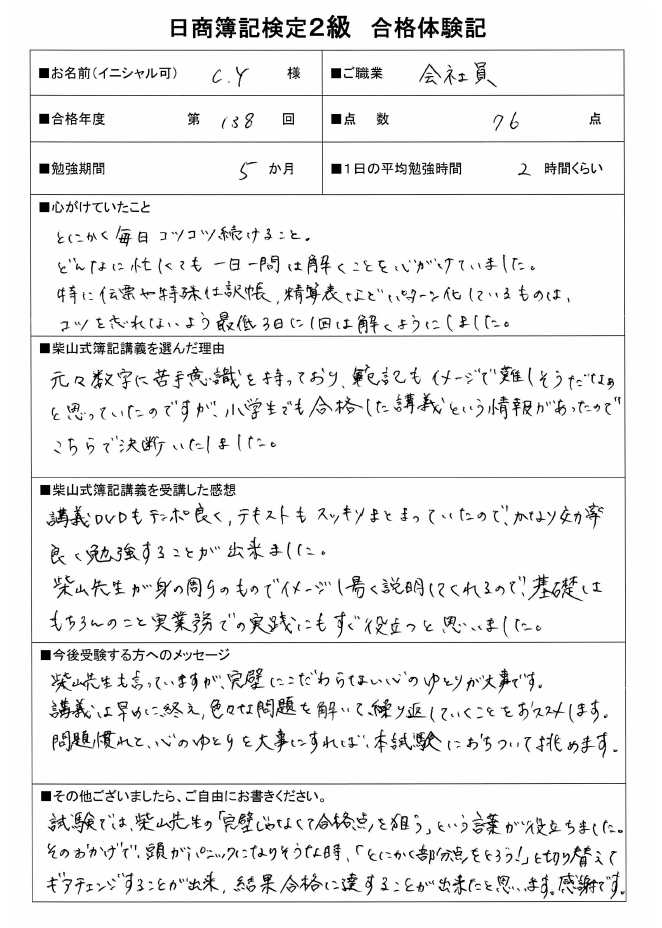 日商簿記検定2級 合格体験記
■お名前(イニシャル可) C.Y 様 ■ご職業 会社員
■合格年度 第 138 回 ■点 数 76 点
■勉強期間 5 か月 ■1日の平均勉強時間 2 時間くらい
■心がけていたこと
とにかく毎日コツコツ続けること。
どんなに忙しくても一日一問は解くことを心がけていました。
特に伝票や特殊仕訳帳、精算表などパターン化しているものは、
コツを忘れないよう最低3日に1回は解くようにしました。
■柴山式簿記講義を選んだ理由
元々数字に苦手意識を持っており、簿記もイメージで難しそうだなぁ
と思っていたのですが、小学生でも合格した講義という情報があったので
こちらで決断いたしました。
■柴山式簿記講義を受講した感想
講義DVDもテンポ良く、テキストもスッキリまとまっていたので、かなり効率
良く勉強することが出来ました。
柴山先生が身の周りのものでイメージし易く説明してくれるので、基礎は
もちろんのこと実業務での実践にもすぐ役立つと思いました。
■今後受験する方へのメッセージ
柴山先生も言っていますが、完璧にこだわらない心のゆとりが大事です。
講義は早めに終え、色々な問題を解いて、繰り返していくことをおススメします。
問題慣れと、心のゆとりを大事にすれば、本試験におちついて挑めます。
■その他ございましたら、ご自由にお書きください。
試験では、柴山先生の「完璧じゃなくて合格点を狙う」という言葉が役立ちました。
そのおかげで、頭がパニックになりそうな時、「とにかく部分点をとろう!」と切り替えて
ギアチェンジすることが出来、結果合格に達することが出来たと思います。感謝です。